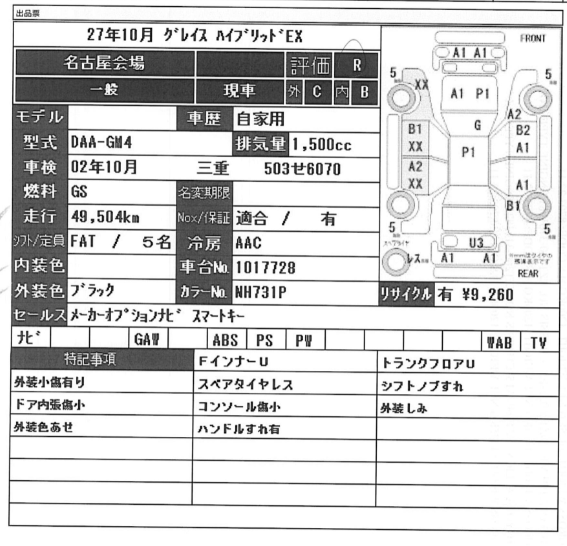 出品票
27年10月 グレイス ハイブリッドEX
名古屋会場 評価 R
一般 現車 外 C 内 B
モデル 車歴 自家用
型式 DAA-GM4 排気量 1,500cc
車検 02年10月 三重 503せ6070
燃料 GS 名変期限
走行 49,504km Nox/保証 適合 / 有
シフト/定員 FAT / 5名 冷房 AAC
内装色 車台No. 1017728
外装色 ブラック カラーNo. NH731P
リサイクル 有 ¥9,260
セールス メーカーオプションナビ スマートキー
ナビ GAW ABS PS PW WAB TV
特記事項 FインナーU トランクフロアU
外装小傷有り スペアタイヤレス シフトノブすれ
ドア内張傷小 コンソール傷小 外装しみ
外装色あせ ハンドルすれ有
FRONT
A1 A1
5 5
XX A1 P1
A2
B1 G B2
XX P1 A1
A2
XX A1
B1
5 5
スペアタイヤ
レス
U3
A1 A1
REAR